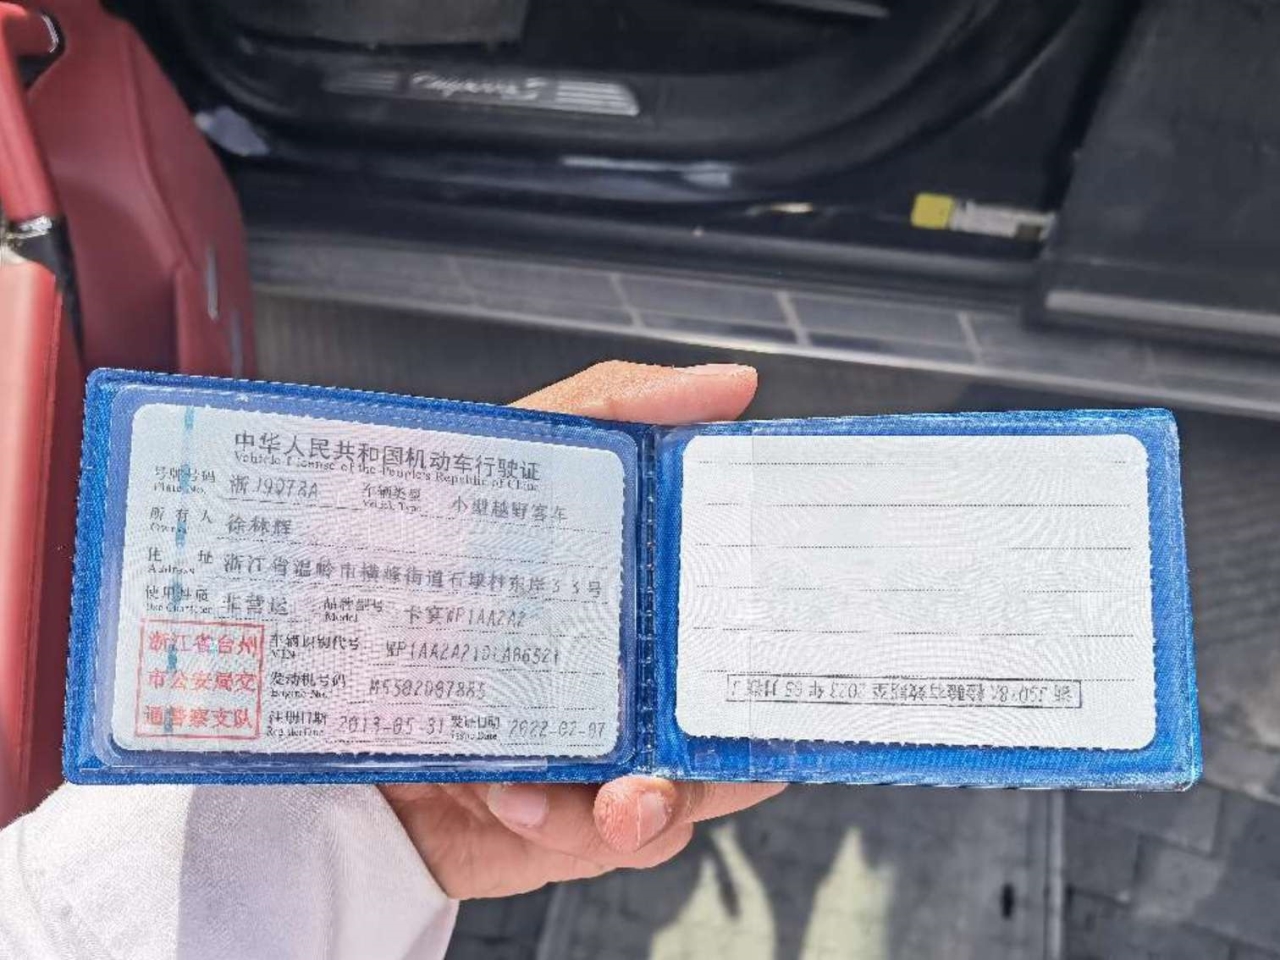 Cayenne S
中华人民共和国机动车行驶证
Vehicle License of the People's Republic of China
号牌号码 浙J9Q78A 车辆类型 小型越野客车
Plate No. Vehicle Type
所有人 徐林辉
Owner
住址 浙江省温岭市横峰街道石塘村东岸33号
Address
使用性质 非营运 品牌型号 卡宴WP1AA2A2
Use Character Model
浙江省台州 车辆识别代号
VIN
市公安局交 发动机号码
Engine No.
通警察支队 注册日期 2013-05-31 发证日期 2022-02-07
Register Date Issue Date